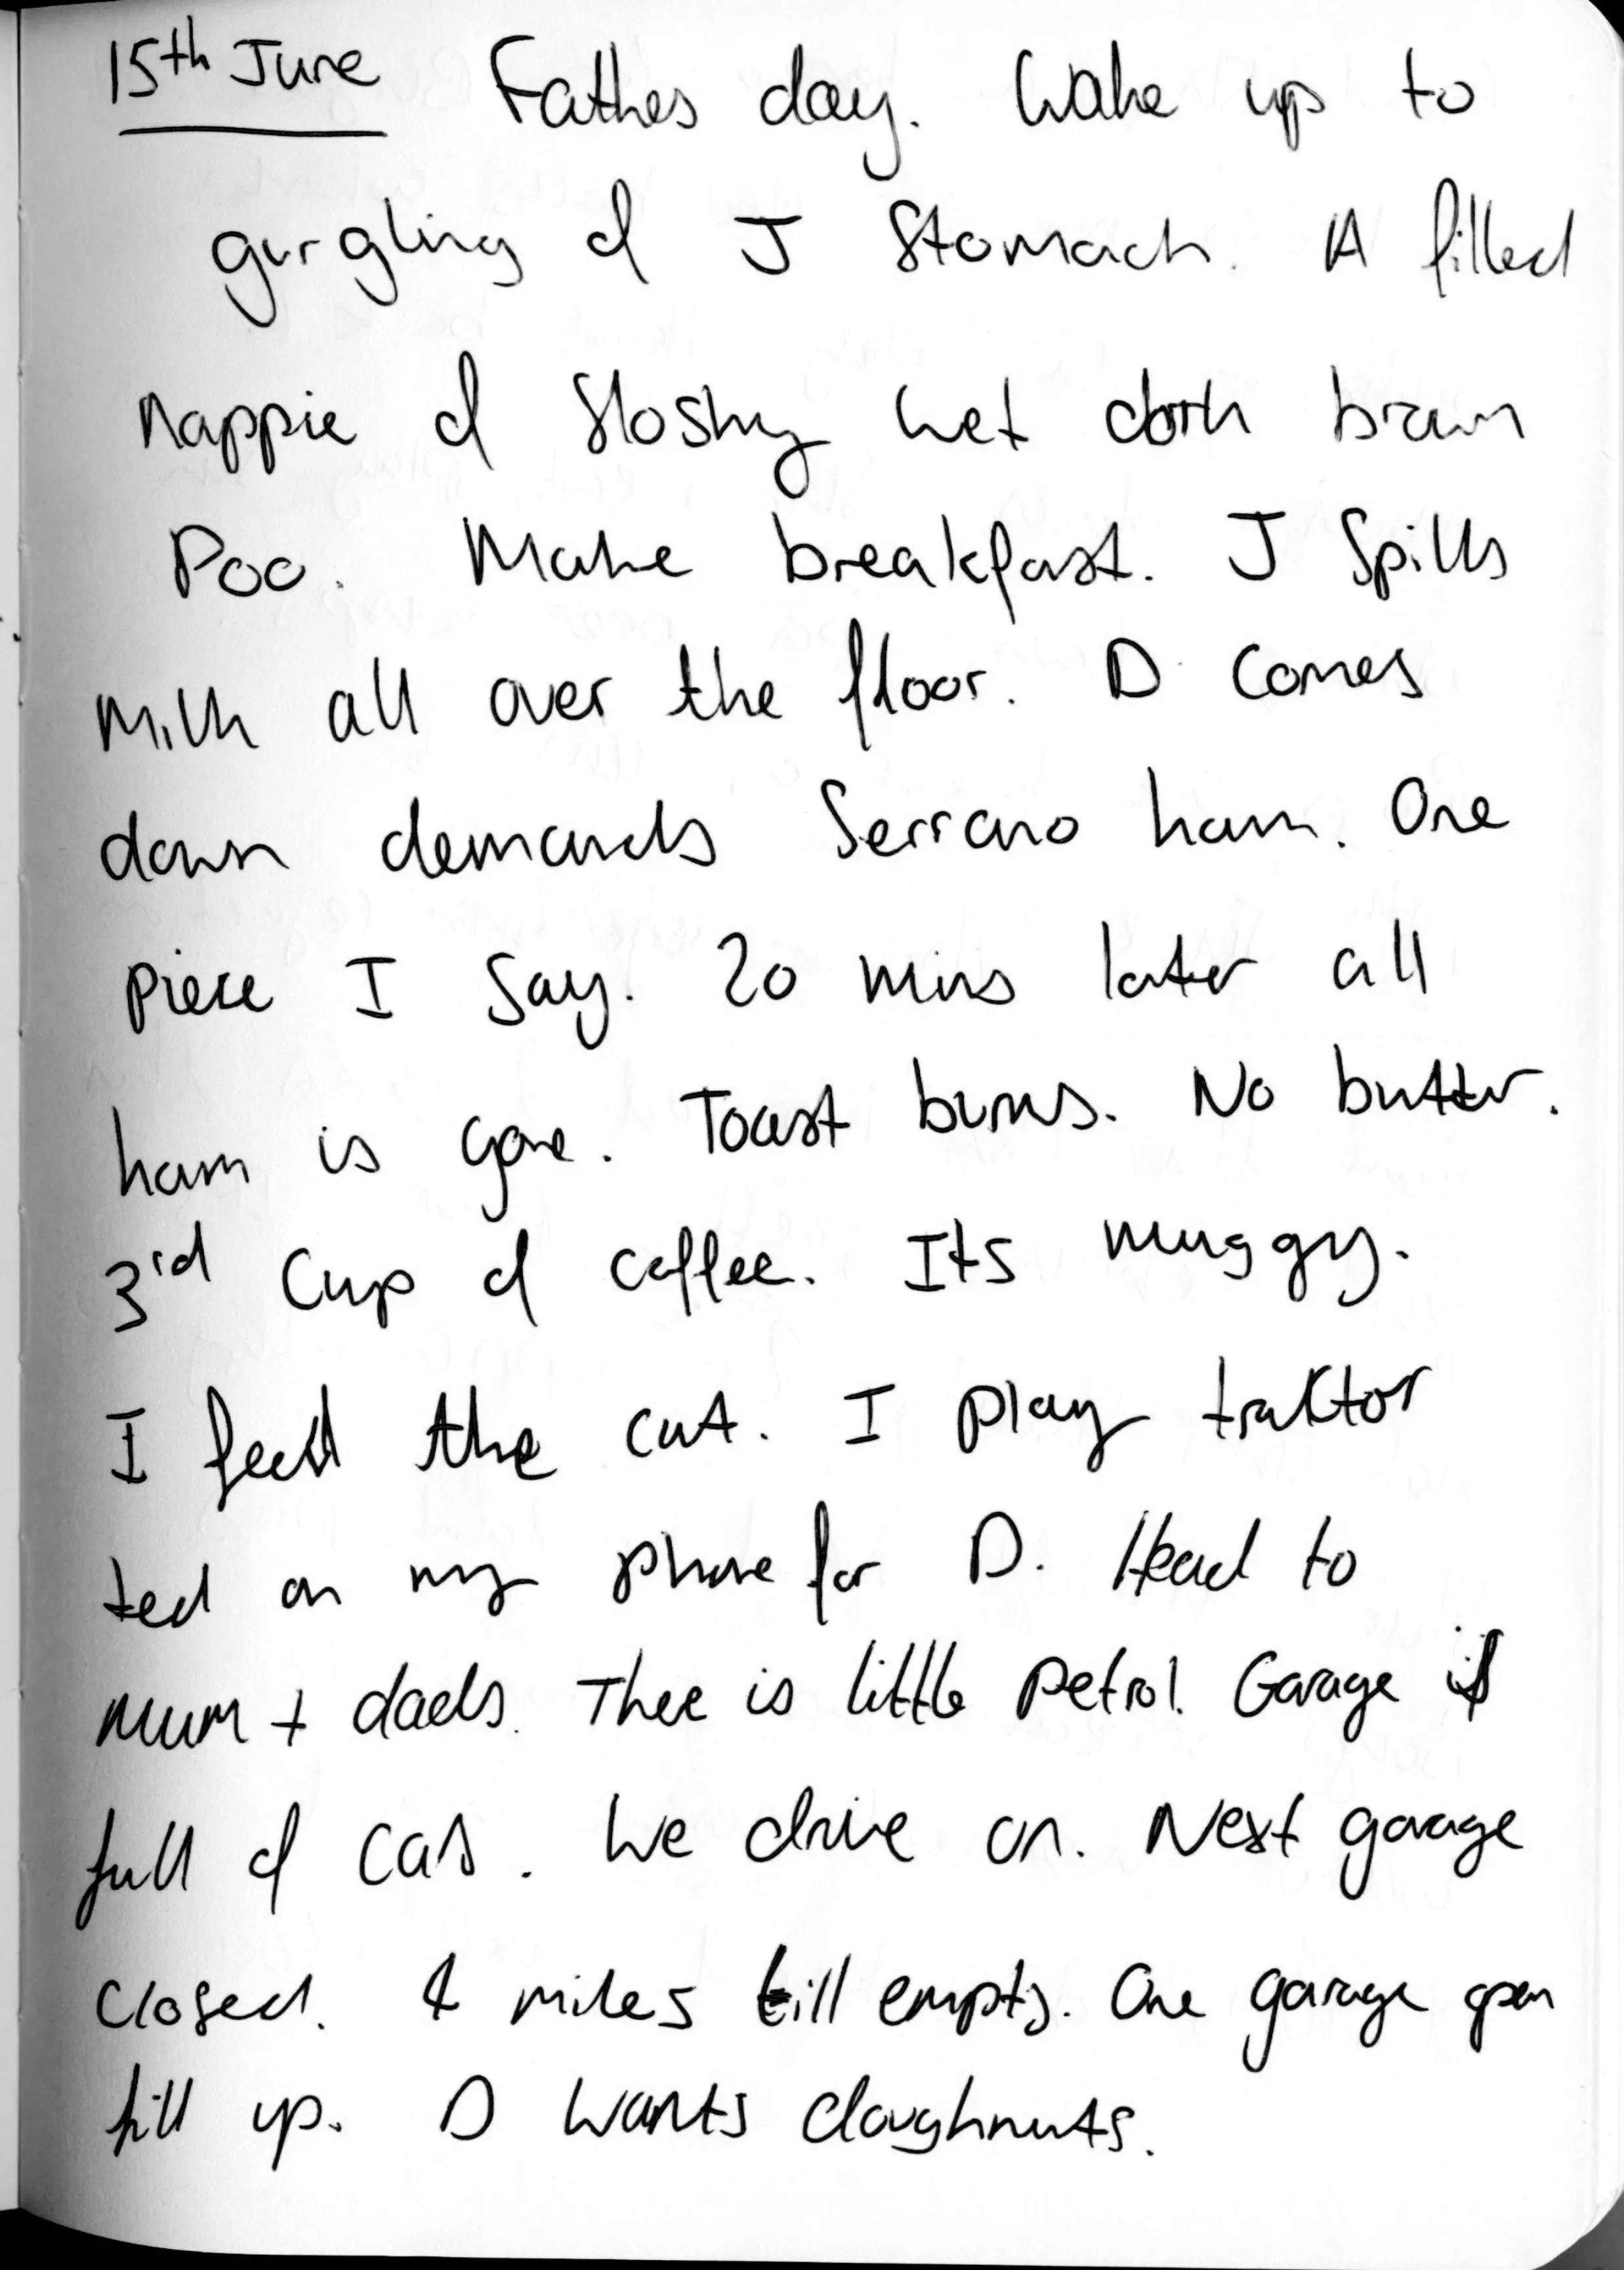 15th June Fathes day. Wake up to
gurgling of J Stomach. A filled
Nappie of Sloshy wet dark brown
Poo. Make breakfast. J Spills
Milk all over the floor. D comes
down demands Serrano ham. One
piece I say. 20 mins later all
ham is gone. Toast burns. No butter.
3rd Cup of coffee. Its muggy.
I feed the cat. I play traktor
ted on my phone for D. Head to
Mum + dads. Thee is little petrol. Garage is
full of cars. We drive on. Next garage
closed. 4 miles till empty. One garage open
fill up. D wants doughnuts.